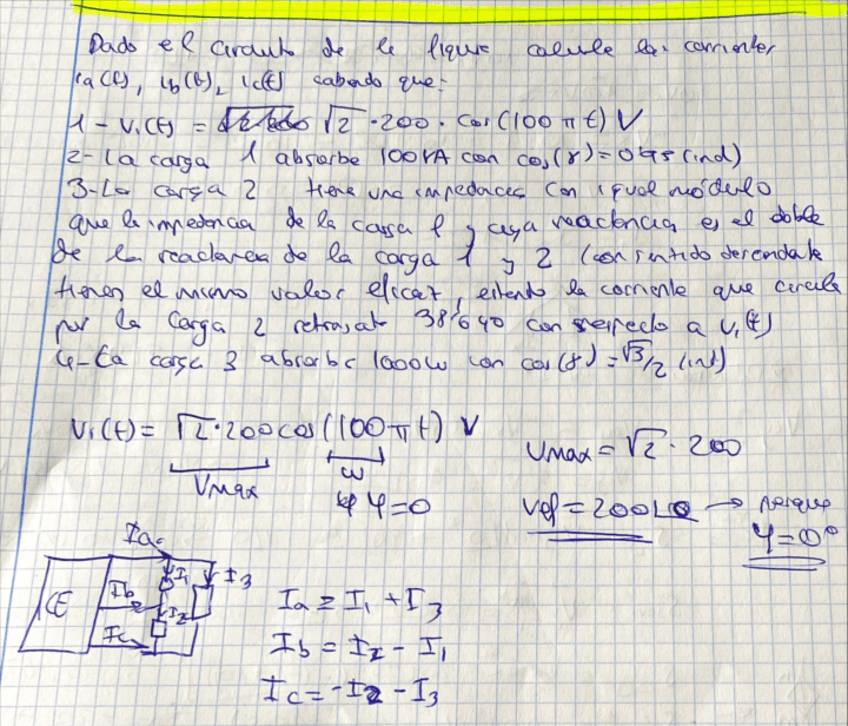 Dado el circuito de la figura calcule las corrientes
ia(t), ib(t), ic(t) sabendo que:
1 - V₁(t) = √2 · 200 · cos(100 π t) V
2- La carga 1 absorbe 100VA con cos(γ)= (ind)
3-La carga 2 tiene una impedancia con igual módulo
que la impedancia de la carga 1 y cuya reactancia es el doble
de la reactancia de la carga 1 y 2 (con sentido
tienen el mismo valor eficaz, estando la corriente que circula
por la Carga 2 38'640 con respecto a V₁(t)
4-La carga 3 absorbe 1000W con cos(γ) = √3/2 (ind)
V₁(t) = √2·200cos(100πt) V
Vmax = √2 · 200
Vmax
ω
φ=0
Vef = 200∠0 → porque
φ=0°
Ia
I₁
I3
CE
Ib
I2
Ic
Ia = I₁ + I3
Ib = I2 - I₁
Ic = -I2 - I3